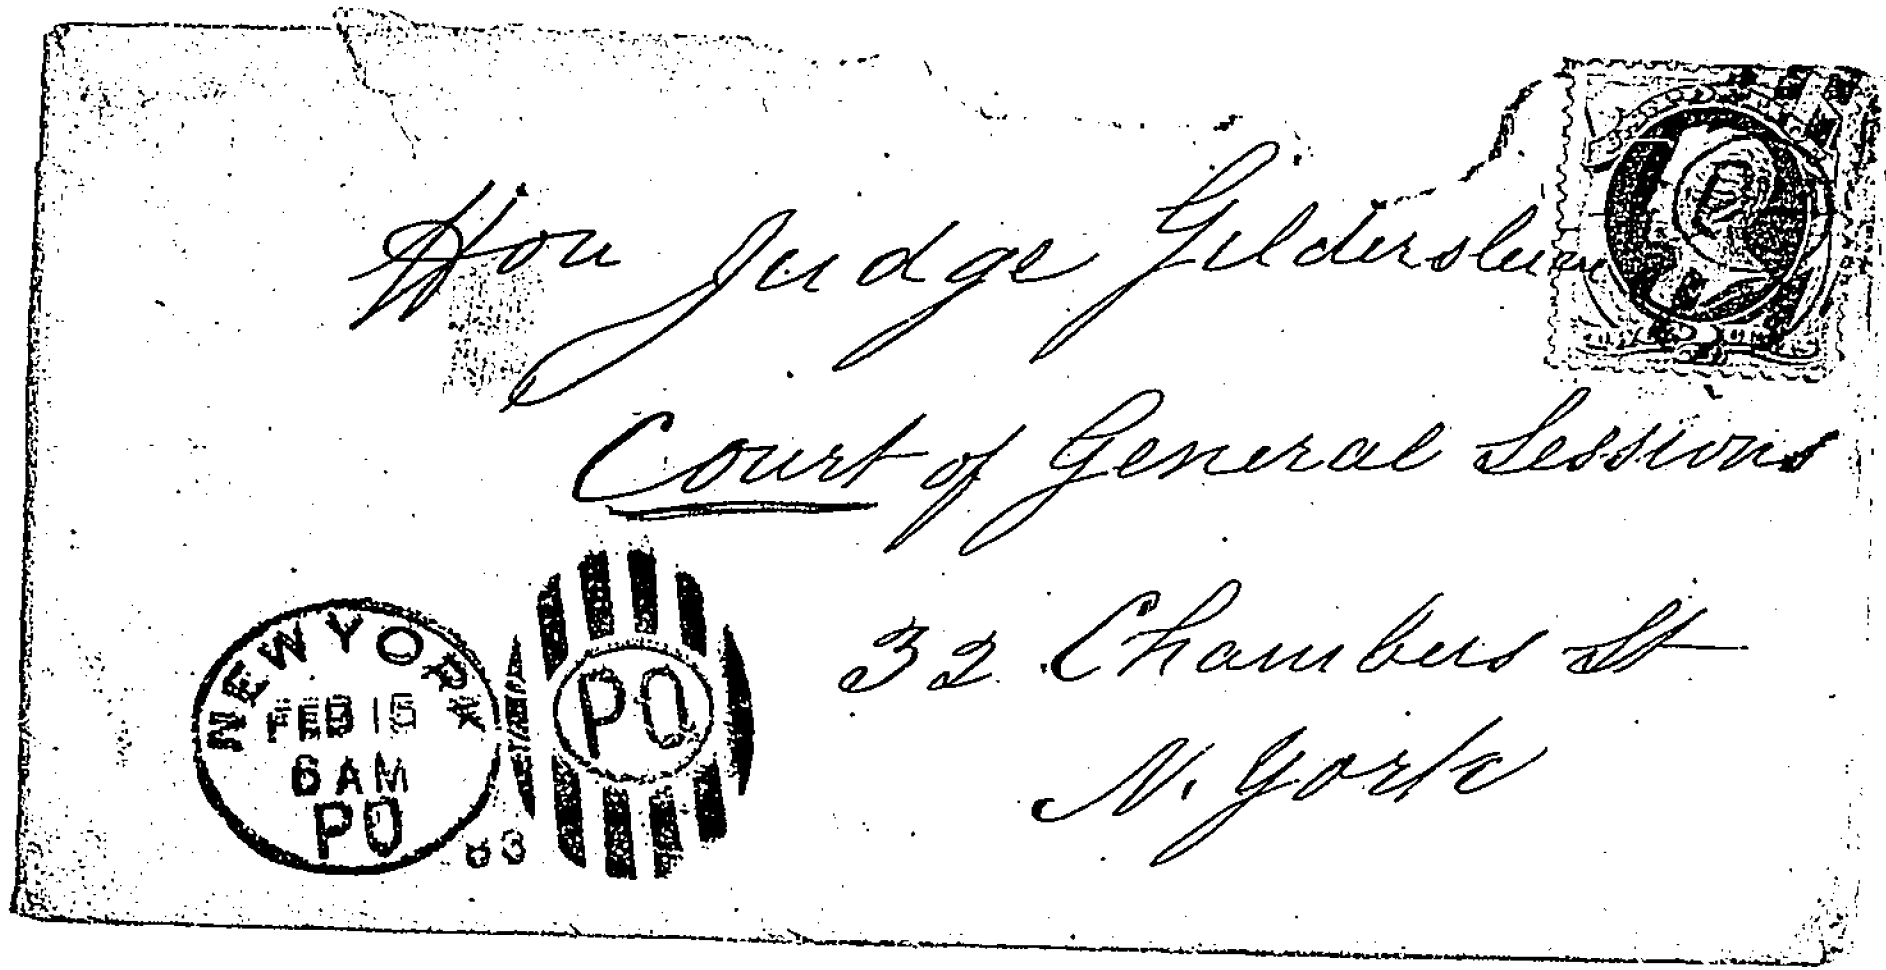 Hon Judge Gildersleeve
Court of General Sessions
32 Chambers St
N. York
NEW YORK
FEB 15
6 AM
PO
83
PO